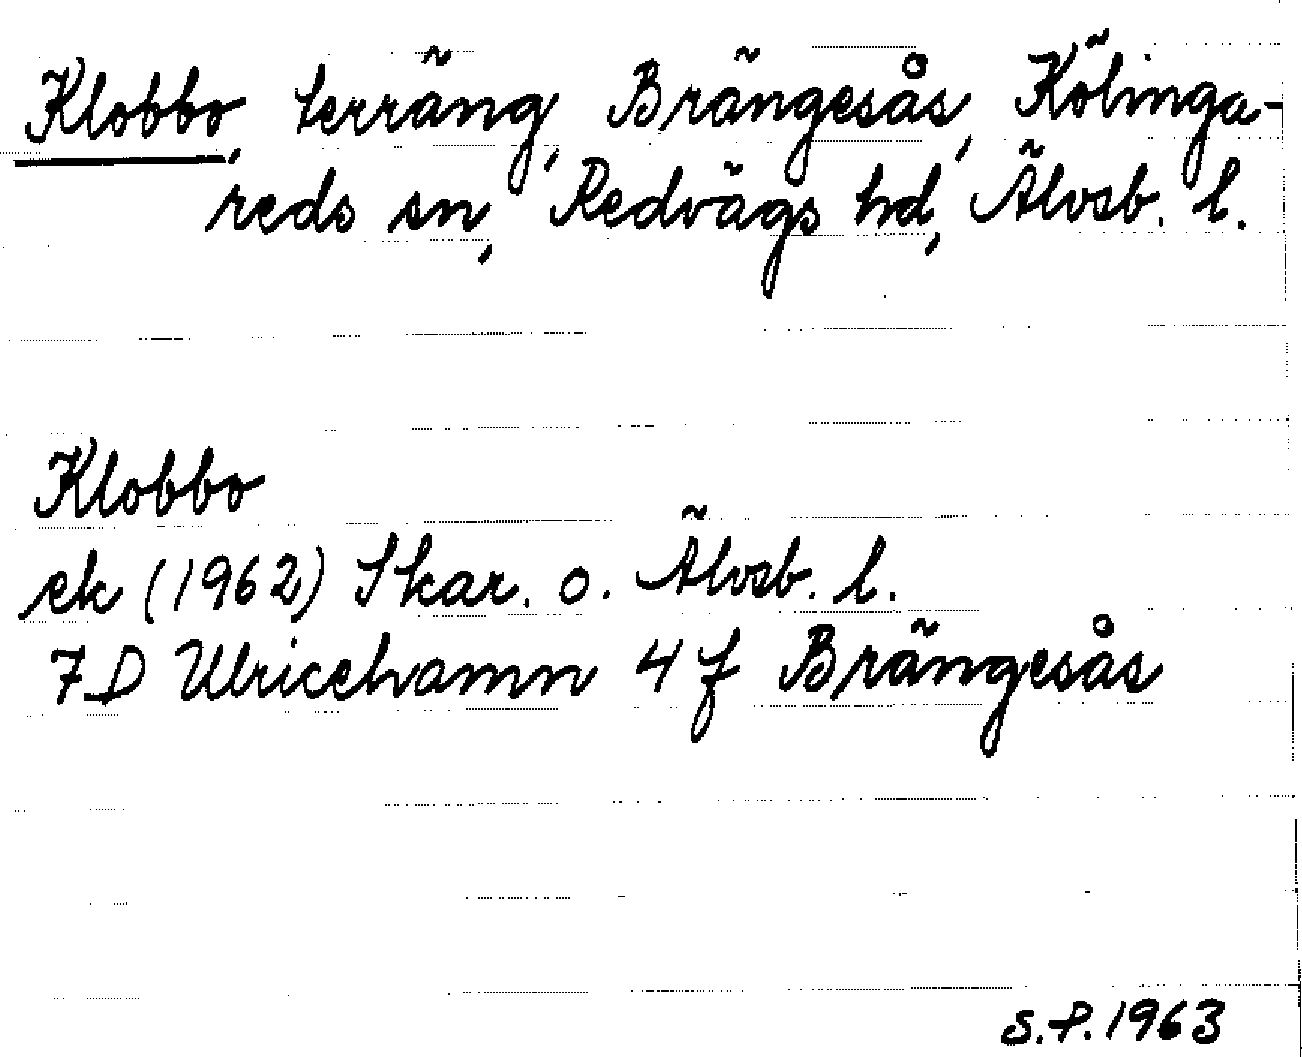 Klobbo, terräng, Brängesås, Kölinga-
reds sn, Redvägs hd, Älvsb. l.
Klobbo
ek (1962) Skar. o. Älvsb. l.
7D Ulricehamn 4 f Brängesås
S.P. 1963